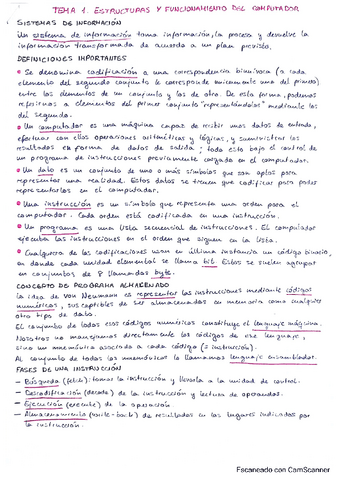 TEMA 1. ESTRUCTURAS Y FUNCIONAMIENTO DEL COMPUTADOR
SISTEMAS DE INFORMACIÓN
Un sistema de información toma información, la procesa y devuelve la
información transformada de acuerdo a un plan previsto.
DEFINICIONES IMPORTANTES
• Se denomina codificación a una correspondencia biunívoca (a cada
elemento del segundo conjunto le corresponde únicamente uno del primero)
entre los elementos de un conjunto y los de otro. De esta forma, podemos
referirnos a elementos del primer conjunto "representándolos" mediante los
del segundo.
• Un computador es una máquina capaz de recibir unos datos de entrada,
efectuar con ellos operaciones aritméticas y lógicas, y suministrar los
resultados en forma de datos de salida; todo esto bajo el control de
un programa de instrucciones previamente cargado en el computador.
• Un dato es un conjunto de uno o más símbolos que son aptos para
representar una realidad. Estos datos se tienen que codificar para poder
representarlos en el computador.
• Una instrucción es un símbolo que representa una orden para el
computador. Cada orden está codificada en una instrucción.
• Un programa es una lista secuencial de instrucciones. El computador
ejecuta las instrucciones en el orden que siguen en la lista.
• Cualquiera de las codificaciones usan en última instancia un código binario,
en donde cada unidad elemental se llama bit. Estos se suelen agrupar
en conjuntos de 8 llamados byte.
CONCEPTO DE PROGRAMA ALMACENADO
La idea de Von Neumann es representar las instrucciones mediante códigos
numéricos, susceptibles de ser almacenados en memoria como cualquier
otro tipo de dato.
El conjunto de todos esos códigos numéricos constituye el lenguaje máquina.
Nosotros no manejamos directamente los códigos de ese lenguaje,
sino un mnemónico asociado a cada código (= instrucción).
Al conjunto de todos los mnemónicos lo llamamos lenguaje ensamblador.
FASES DE UNA INSTRUCCIÓN
— Búsqueda (fetch): tomar la instrucción y llevarla a la unidad de control.
— Descodificación (decode) de la instrucción y lectura de operandos.
— Ejecución (execute) de la operación
— Almacenamiento (write-back) de resultados en los lugares indicados por
la instrucción.
Escaneado con CamScanner